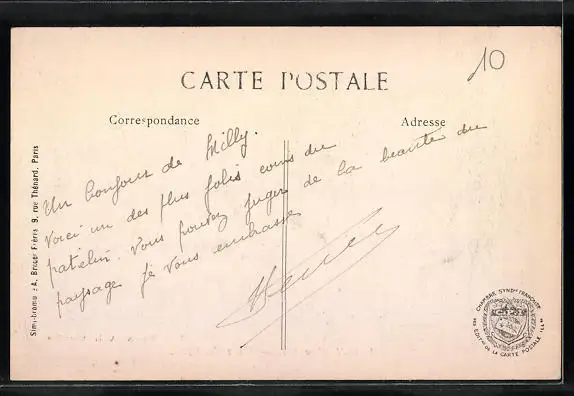 10
CARTE POSTALE
Correspondance
Adresse
Un bonjour de Milly.
Voici un des plus jolis coins du
patelin. Vous pouvez juger de la beauté du
paysage je vous embrasse
Simi-bromure A. Breger Frères 9, rue Thénard, Paris
CHAMBRE SYNDle FRANÇAISE
DES EDITrs DE LA CARTE POSTALE ILLée